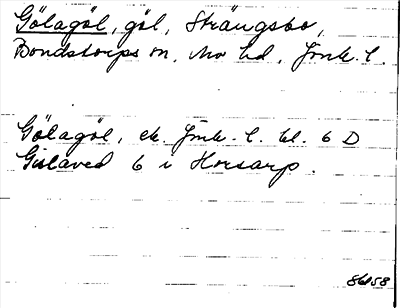 Gölagöl, göl, Strängsbo,
Bondstorps sn, Mo hd, Jönk. l.
Gölagöl, ek. Jönk. l. bl. 6 D
Gislaved 6 i Horsarp.
86158